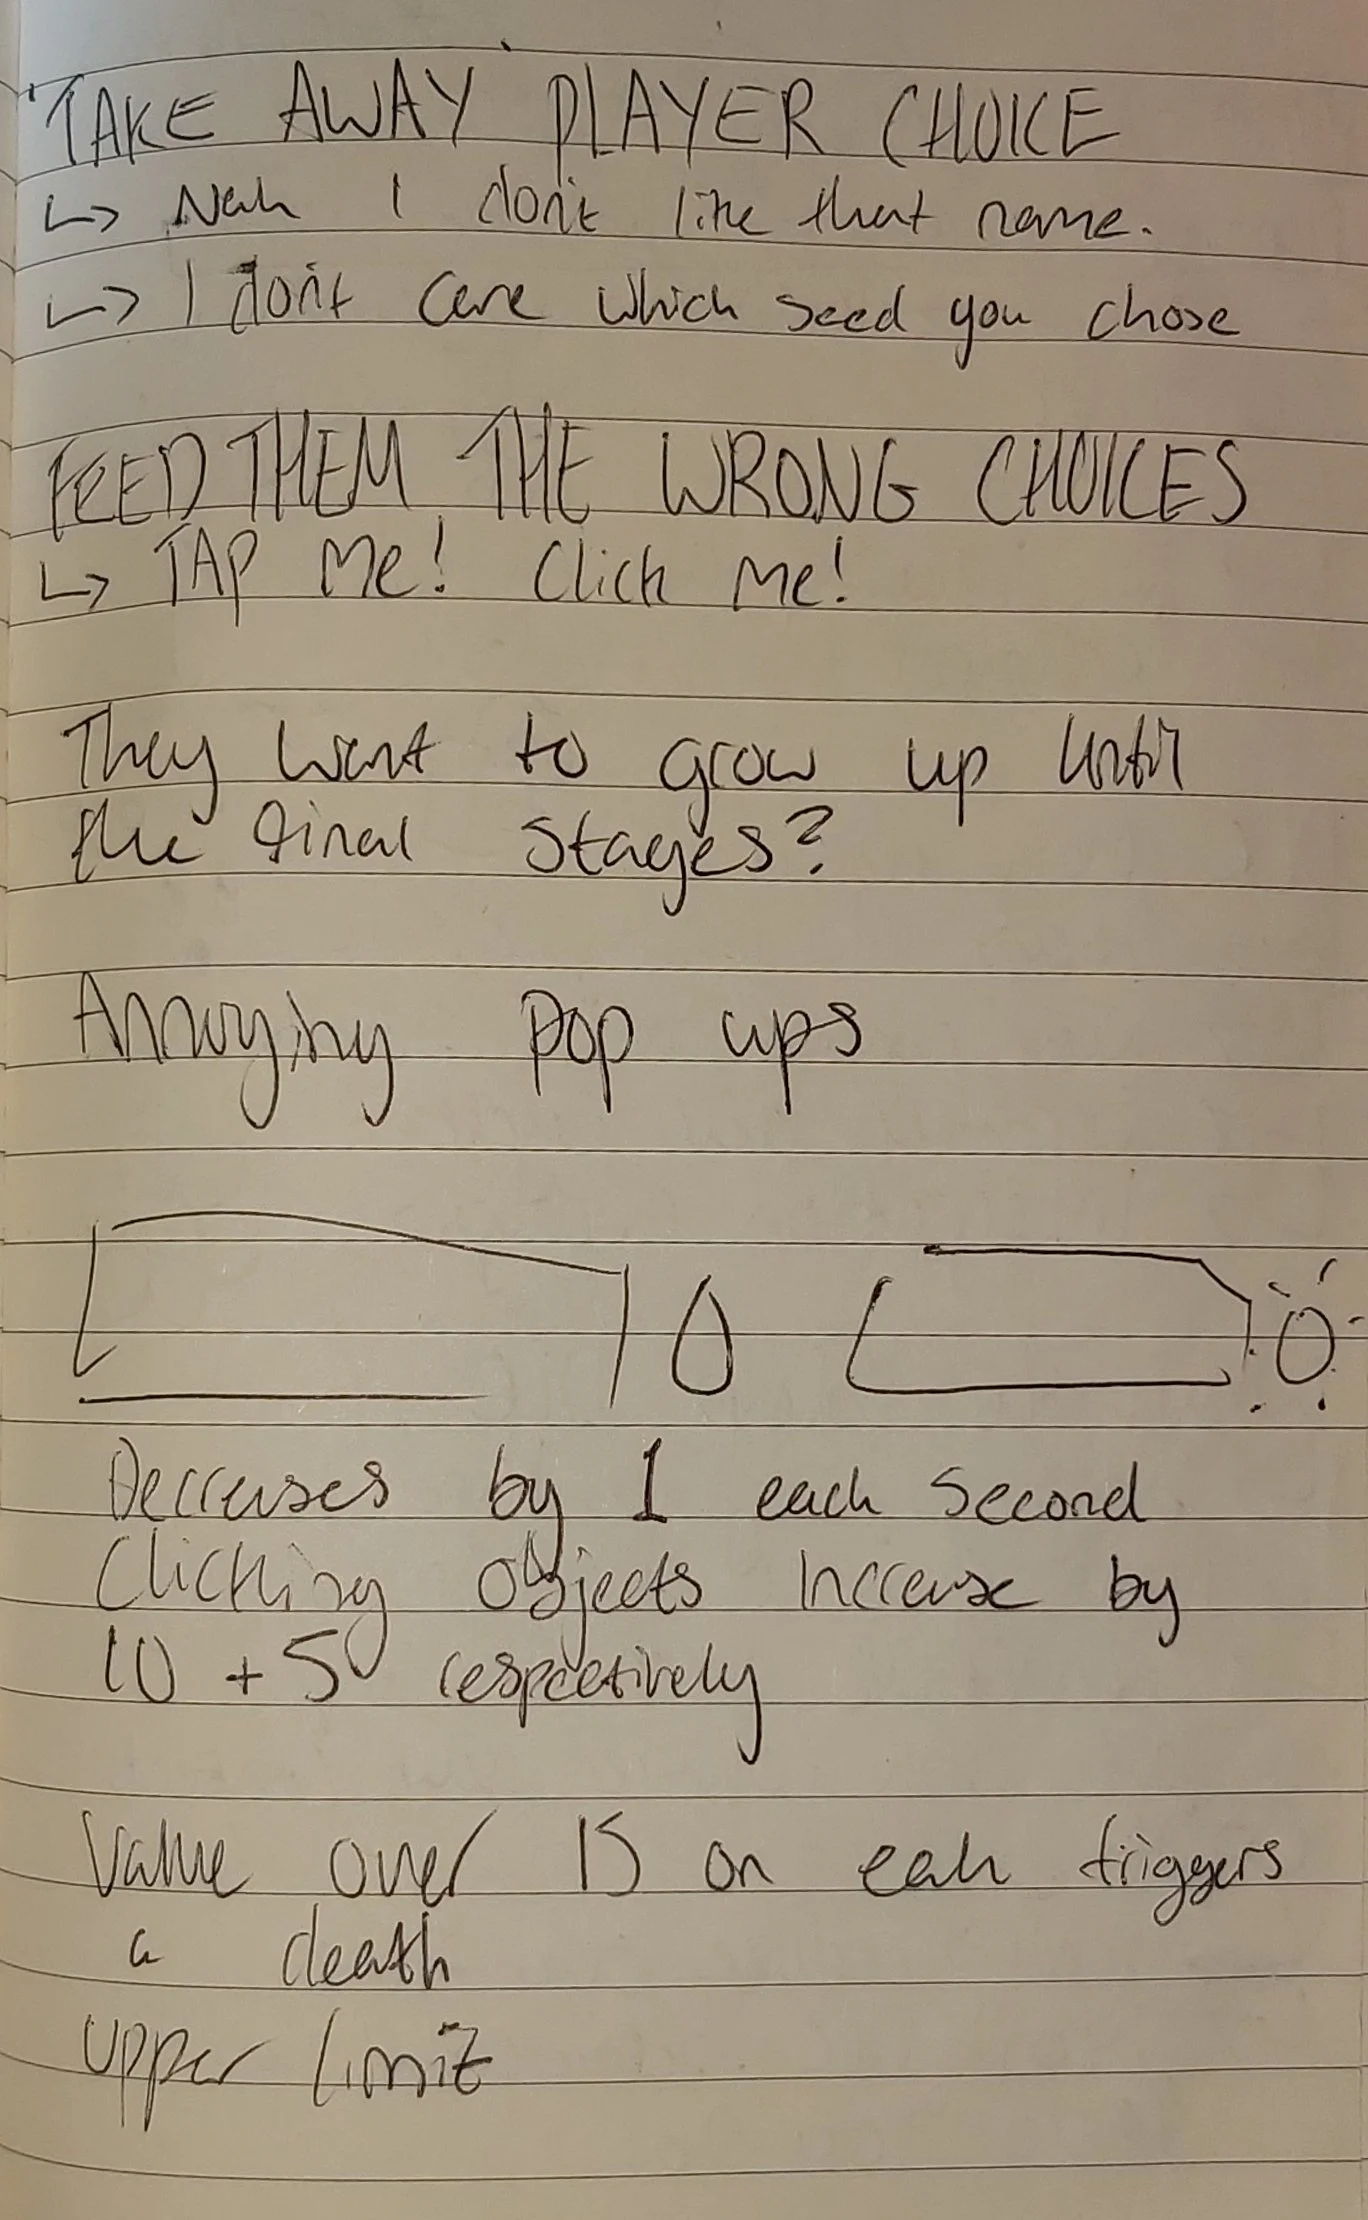 TAKE AWAY PLAYER CHOICE
↳ Nah I don't like that name.
↳ I don't care which seed you chose
FEED THEM THE WRONG CHOICES
↳ TAP Me! Click Me!
They want to grow up until
the final stages?
Annoying Pop ups
Decreases by 1 each second
Clicking objects increase by
10 + 50 respectively
Value over 15 on each triggers
a death
upper limit